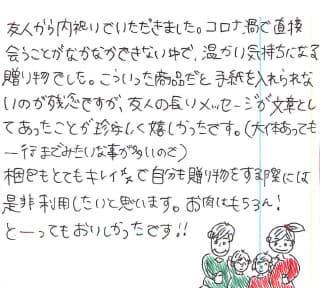 友人から内祝いでいただきました。コロナ渦で直接
会うことがなかなかできない中で、温かい気持ちになる
贈り物でした。こういった商品だと手紙を入れられな
いのが残念ですが、友人の長いメッセージが文章とし
てあったことが珍しく嬉しかったです。(大体あっても
一行までみたいな事が多いので)
梱包もとてもキレイなで自分も贈り物をする際には
是非利用したいと思います。お肉はもちろん!
とーってもおいしかったです!!